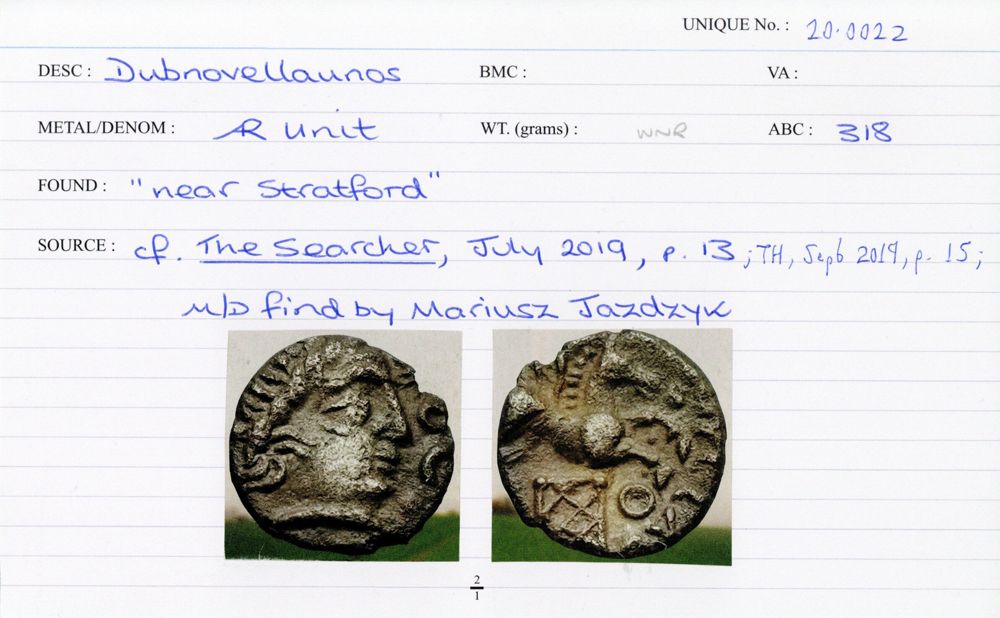 UNIQUE No. : 20.0022
DESC : Dubnovellaunos BMC : VA :
METAL/DENOM : AR unit WT. (grams) : WNR ABC : 318
FOUND : "near Stratford"
SOURCE : cf. The Searcher, July 2019, p. 13 ; TH, Sept 2019, p. 15 ;
M/D find by Mariusz Jazdzyk
2
1